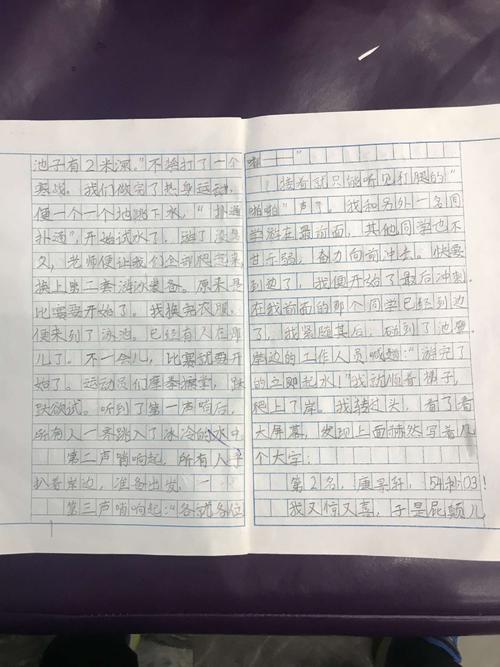 池子有2米深。”不禁打了一个
寒颤。我们做完了热身运动,
便一个一个地跳下水,“扑通
扑通”,开始试水了。过了没多
久,老师便让我们全部爬起来,
换上第二套游泳装备。原来是
比赛要开始了。我换完衣服,
便来到了泳池。已经有人在那
儿了。不一会儿,比赛就要开
始了。运动员们摩拳擦掌,跃
跃欲试。听到了第一声哨后,
所有人一齐跳入了冰冷的水中。
第二声哨响起,所有人手
扒着岸边,准备出发。
第三声哨响起:“各就各位
啪——”
接着就只能听见打腿的“
啪啪”声了。我和另外一名同
学游在最前面,其他同学也不
甘示弱,奋力向前冲去。快要
到边了,我便开始了最后冲刺。
在我前面的那个同学已经到边
了,我紧随其后,碰到了池壁。
岸边的工作人员喊道:“游完了
的立即起水!”我于是顺着梯子,
爬上了岸。我转过头,看了看
大屏幕,发现上面赫然写着几
个大字:
第2名,唐景轩,54秒:03!
我又惊又喜,于是屁颠儿